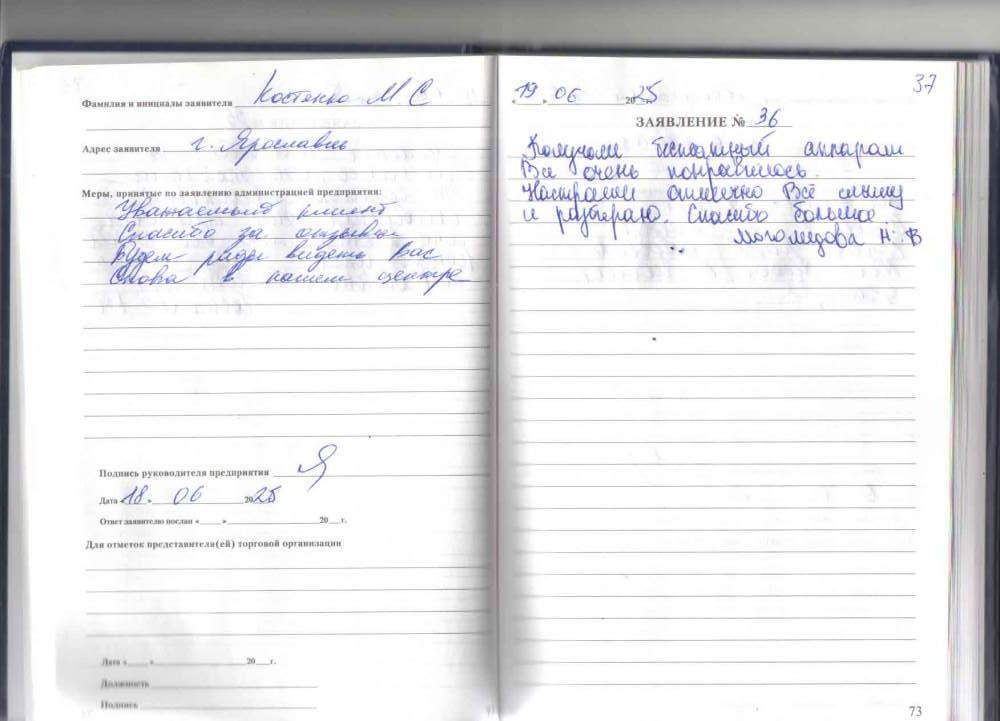 Фамилия и инициалы заявителя Костенко М С
Адрес заявителя г. Ярославль
Меры, принятые по заявлению администрацией предприятия:
Уважаемый клиент
Спасибо за отзыв
Будем рады видеть Вас
Снова в нашем центре
Подпись руководителя предприятия
Дата «18» 06 2025
Ответ заявителю послан « » 20 г.
Для отметок представителя(ей) торговой организации
Дата « » 20 г.
Должность
Подпись
37
19 06 2025 г.
ЗАЯВЛЕНИЕ № 36
Получали бесплатный аппарат
Все очень понравилось.
Настроили отлично Всё слышу
и разбираю. Спасибо большое.
Могомедова Н. В
73